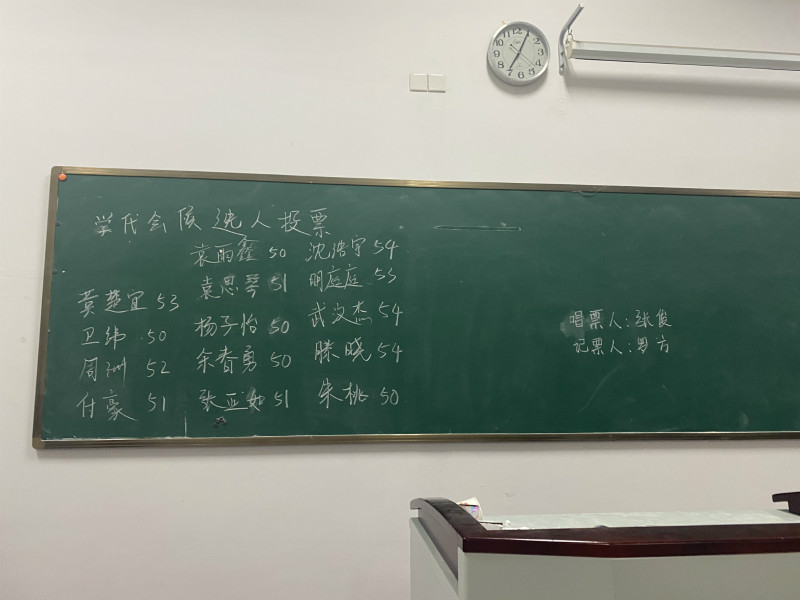 学代会候选人投票
袁雨鑫 50 沈浩宇 54
袁思琴 51 明庭庭 53
黄楚宜 53
武汶杰 54
卫纬 50
杨子怡 50
周洲 52
余春勇 50 滕晓 54
付豪 51
张亚如 51 朱桃 50
唱票人:张俊
记票人:罗方